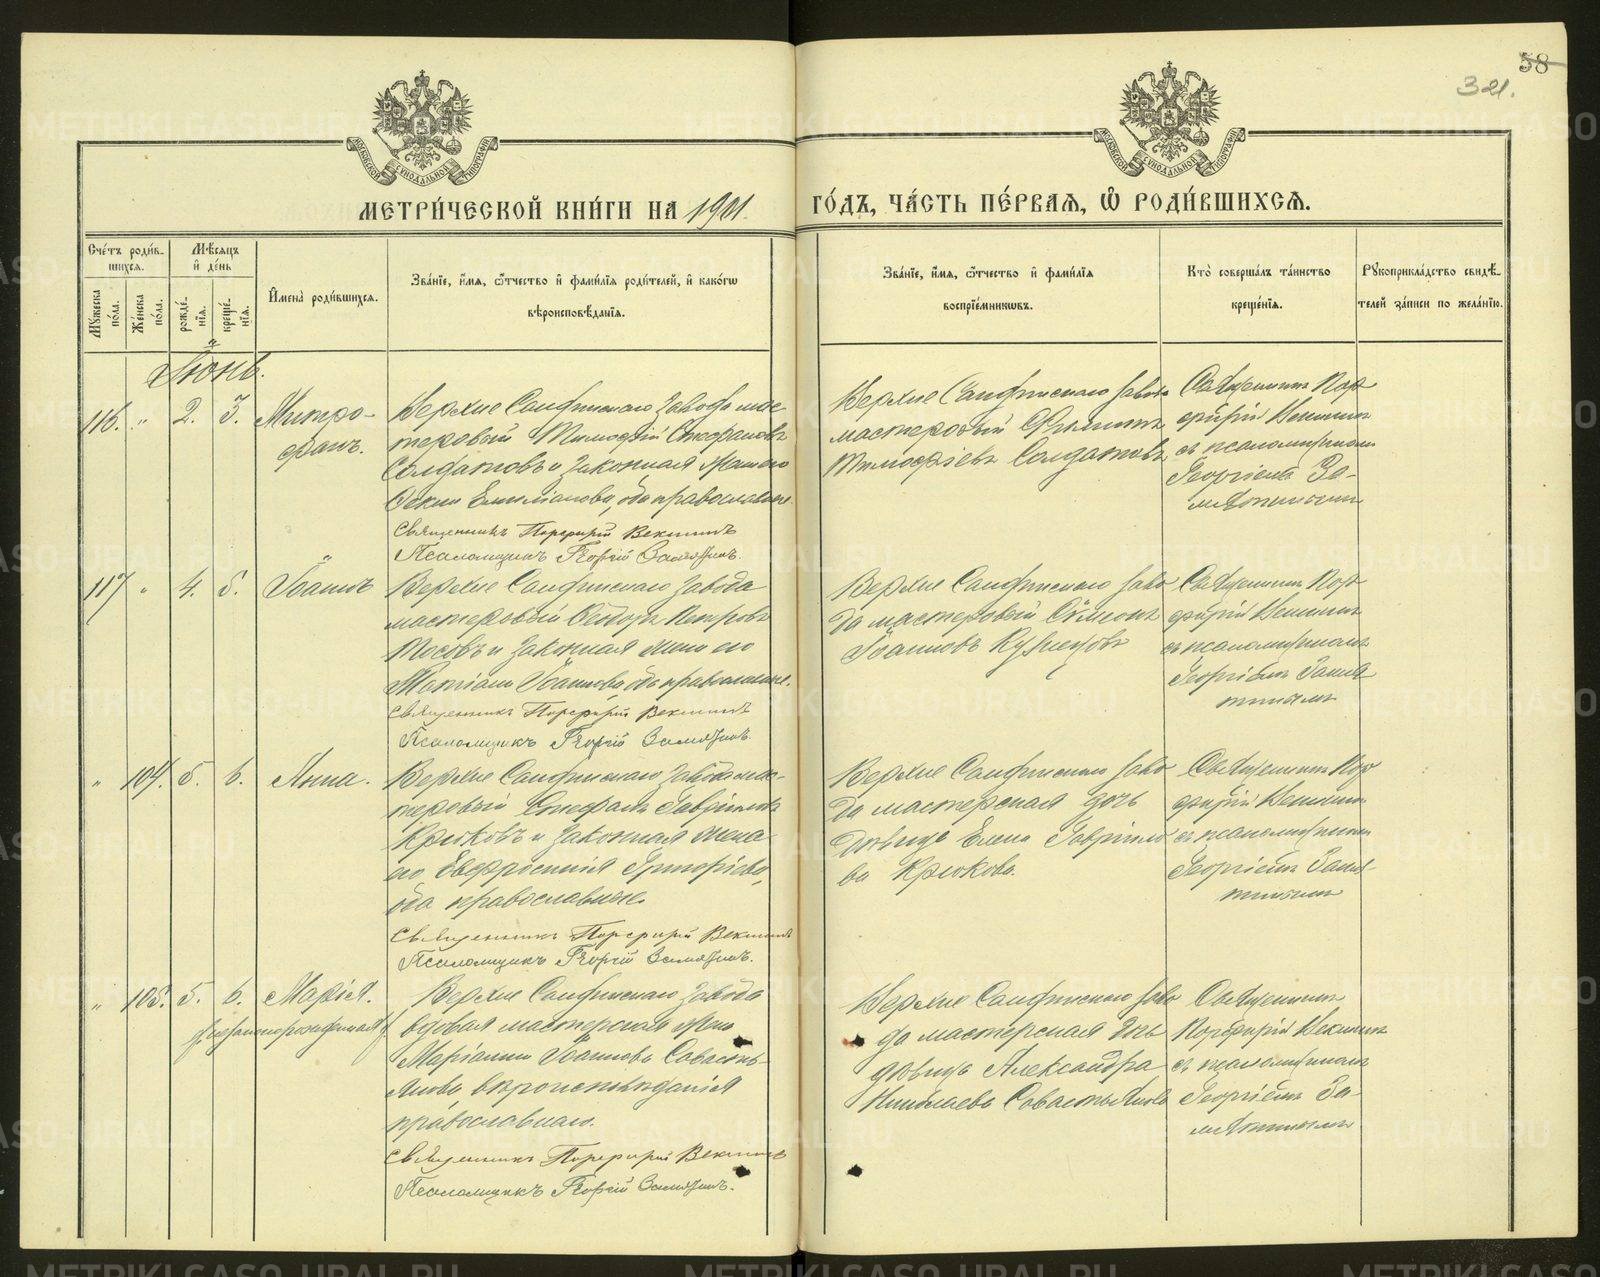 58
321.
МЕТРИ́ЧЕСКОЙ КНИ́ГИ НА 1901.
ГО́ДЪ, ЧА́СТЬ ПЕ́РВАѦ, Ѡ҆ РОДИ́ВШИХСѦ.
Сче́тъ роди́в-
шихсѧ.
Мꙋжеска по́ла.
Же́нска по́ла.
Мѣ́сѧцъ
и҆ де́нь
рожде́-
нїѧ.
креще́-
нїѧ.
И҆мена̀ роди́вшихсѧ.
Зва́нїе, и҆́мѧ, ѻ҆́тчество и҆ фами́лїѧ роди́телей, и҆ како́гѡ
вѣроисповѣ́данїѧ.
Зва́нїе, и҆́мѧ, ѻ҆́тчество и҆ фами́лїѧ
воспрїе́мникѡвъ.
Кто̀ соверша́лъ та́инство
креще́нїѧ.
Рꙋкоприкла́дство свидѣ́-
телей за́писи по жела́нїю.
Іюнь.
116. " 2. 3. Митро-
фанъ.
Верхне Санфинскаго завода мас
теровый Тимофѣй Стефановъ
Солдатовъ и законная жена его
Емиліанова, оба православные.
Священникъ Порфирій Векшинъ
Псаломщикъ Георгій Замятинъ.
Верхне Санфинскаго заво
мастеровый Филиппъ
Тимофѣевъ Солдатовъ
Священникъ Пор
фирій Векшинъ
съ псаломщикомъ
Георгіемъ За-
мятинымъ
117 " 4. 5. Іоаннъ
Верхне Санфинскаго завода
мастеровый Ѳеодоръ Петровъ
Носовъ и законная жена его
Іоаннова, оба православные.
Священникъ Порфирій Векшинъ
Псаломщикъ Георгій Замятинъ.
Верхне Санфинскаго заво
да мастеровый Симеонъ
Іоанновъ Кузнецовъ
Священникъ Пор
фирій Векшинъ
съ псаломщикомъ
Георгіемъ Замя
тинымъ
" 104. 5. 6. Анна.
Верхне Санфинскаго завода мас-
теровый Стефанъ Гавріиловъ
Крюковъ и законная жена
его Евфросинія Григоріева,
оба православные.
Священникъ Порфирій Векшинъ
Псаломщикъ Георгій Замятинъ.
Верхне Санфинскаго заво
да мастерская дочь
дѣвица Елена Гавріило
ва Крюкова.
Священникъ Пор
фирій Векшинъ
съ псаломщикомъ
Георгіемъ Замя-
тинымъ
" 105. 5. 6. Марія.
(незаконнорожденная)
Верхне Санфинскаго завода
вдовая мастерская жена
Маріамна Іоаннова Севасть-
янова вѣроисповѣданія
православнаго.
Священникъ Порфирій Векшинъ
Псаломщикъ Георгій Замятинъ.
Верхне Санфинскаго заво
да мастерская дочь
дѣвица Александра
Николаева Севастьянова
Священникъ
Порфирій Векшинъ
съ псаломщикомъ
Георгіемъ За-
мятинымъ